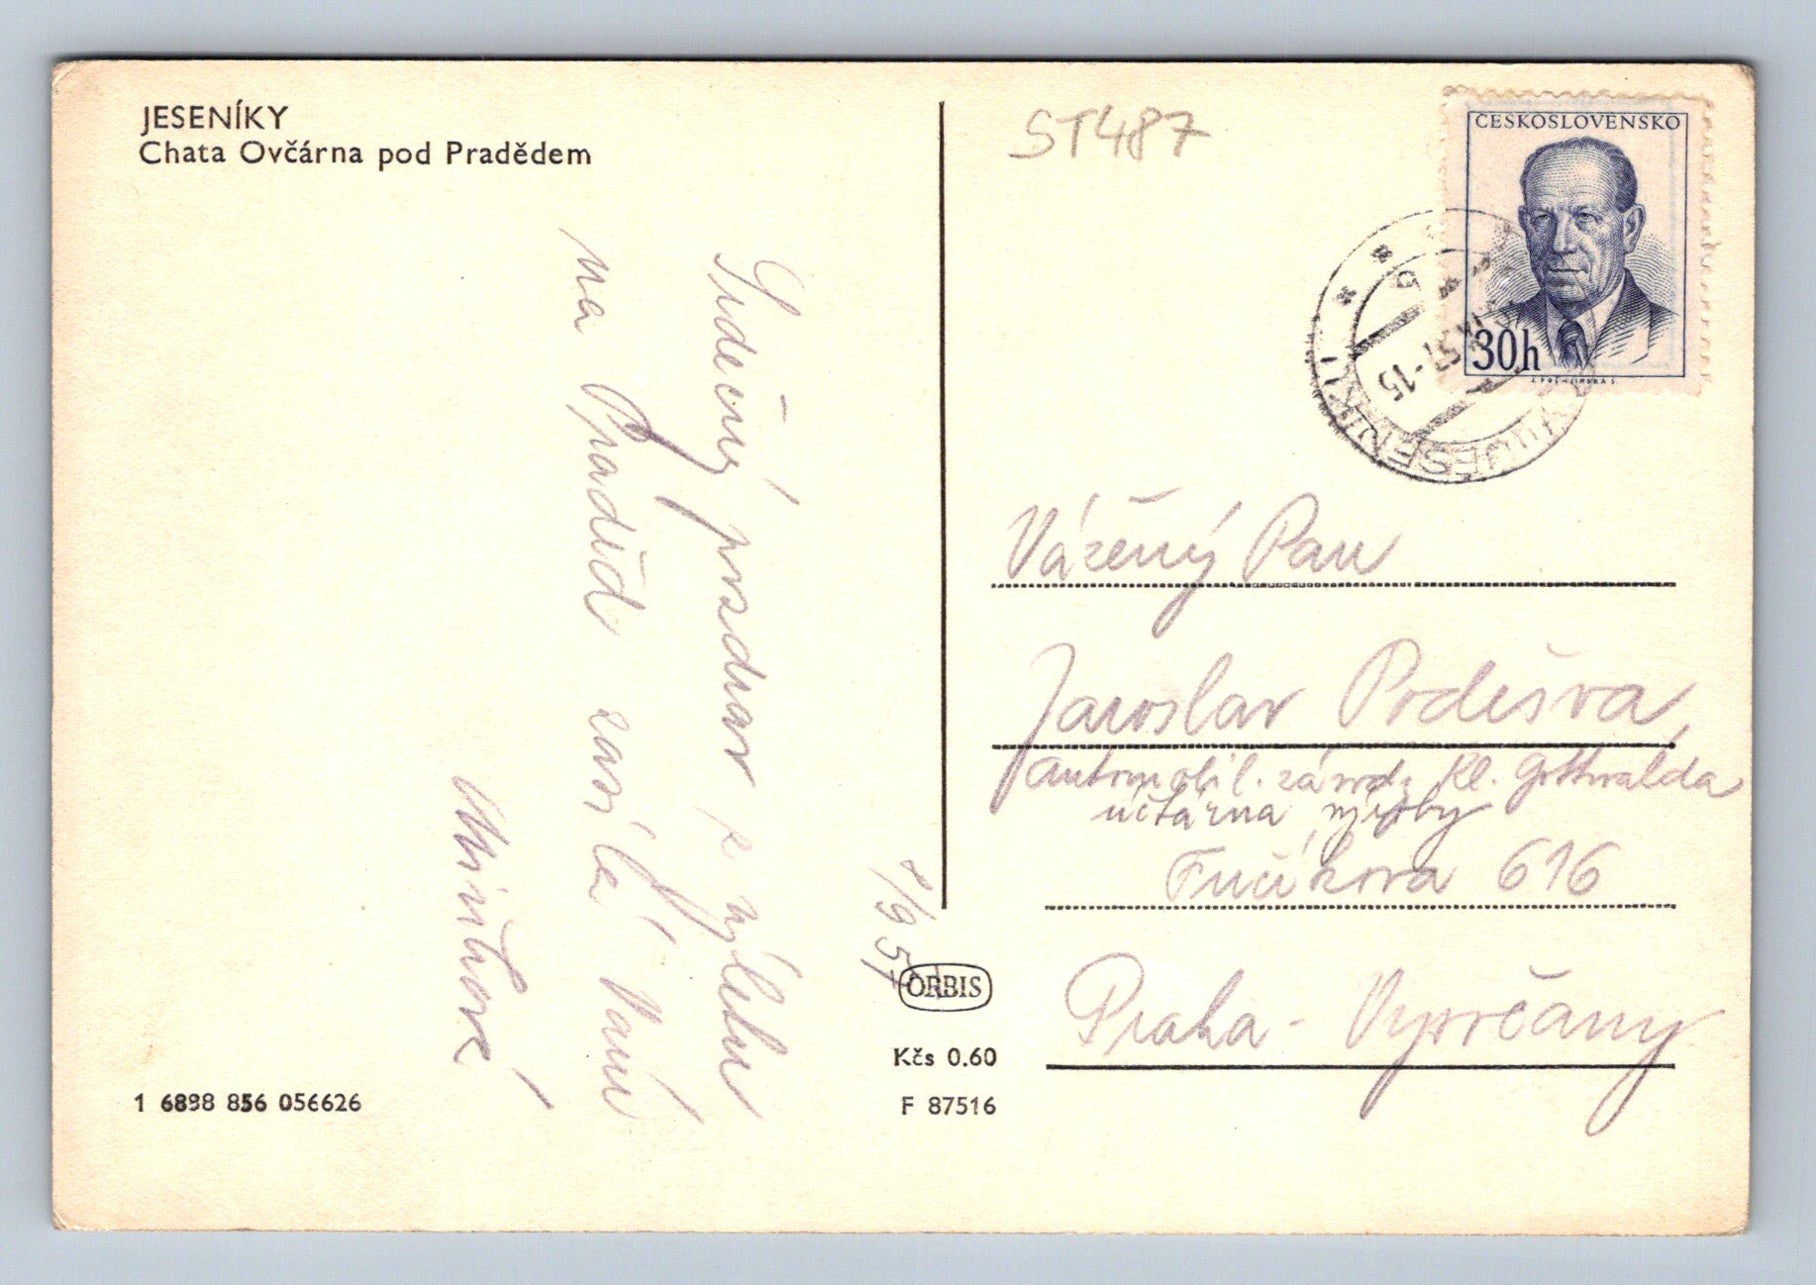 JESENÍKY
Chata Ovčárna pod Pradědem
ST487
ČESKOSLOVENSKO
30h
57-15
JESENÍKU
Srdečný pozdrav z výletu
na Praděd zasílá Vám
8/9 57
Vážený Pan
Jaroslav Podešva,
automobil. závody Kl. Gottwalda
účtárna výroby
Fučíkova 616
Praha - Vysočany
ORBIS
Kčs 0.60
F 87516
1 6898 856 056626